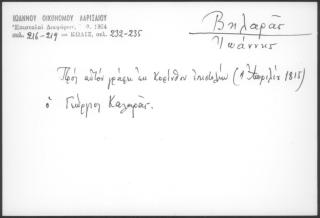 ΙΩΑΝΝΟΥ ΟΙΚΟΝΟΜΟΥ ΛΑΡΙΣΑΙΟΥ
"Επιστολαί Διαφόρων", 1964
σελ. 216-219 — ΚΩΔΙΞ, σελ. 232-235
Βηλαρᾶς
Ἰωάννης
Πρὸς αὐτὸν γράφει ἐκ Κορίνθου ἐπιστολὴν (1 Ἀπριλίου 1815)
ὁ Γεώργιος Καλαρᾶς.